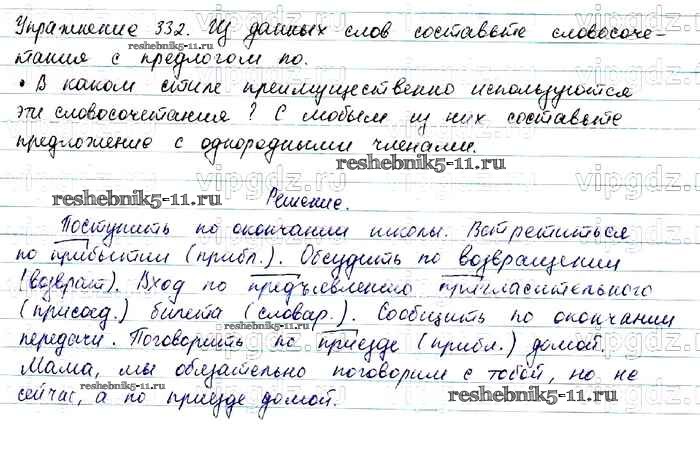 Упражнение 332. Из данных слов составьте словосоче-
reshebnik5-11.ru
тания с предлогом по.
• В каком стиле преимущественно используются
эти словосочетания? С любым из них составьте
предложение с однородными членами.
reshebnik5-11.ru
reshebnik5-11.ru
Решение.
Поступить по окончании школы. Встретиться
по прибытии (прибл.). Обсудить по возвращении
(возврат). Вход по предъявлению пригласительного
(присоед.) билета (словар.). Сообщить по окончании
reshebnik5-11.ru
передачи. Поговорить по приезде (прибл.) домой.
Мама, мы обязательно поговорим с тобой, но не
reshebnik5-11.ru
сейчас, а по приезде домой.
reshebnik5-11.ru